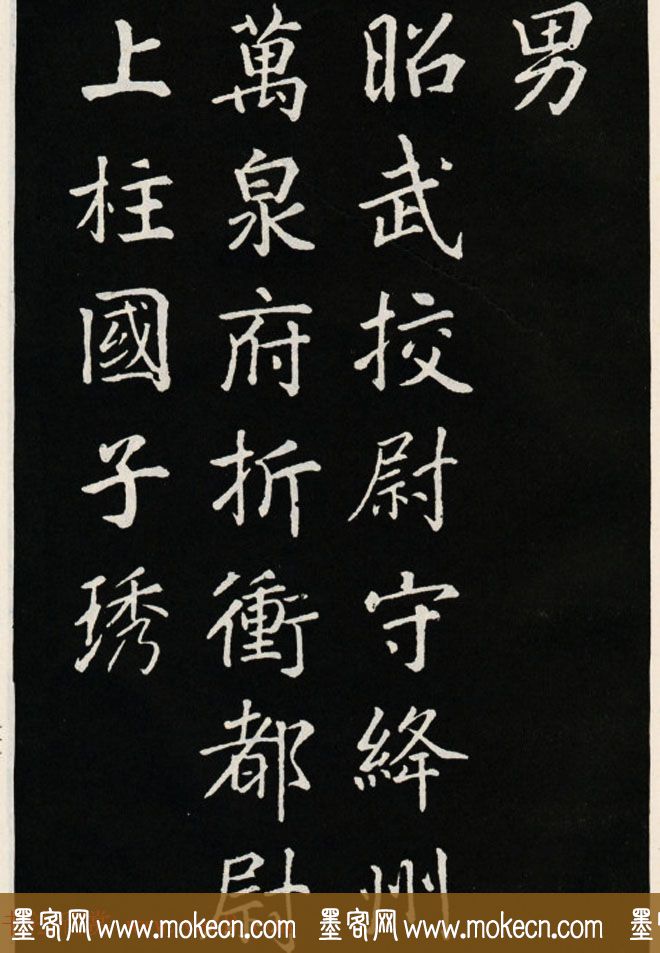 男
昭武挍尉守絳州
萬泉府折衝都尉
上柱國子琇
墨客网 www.mokecn.com 墨客网 www.mokecn.com